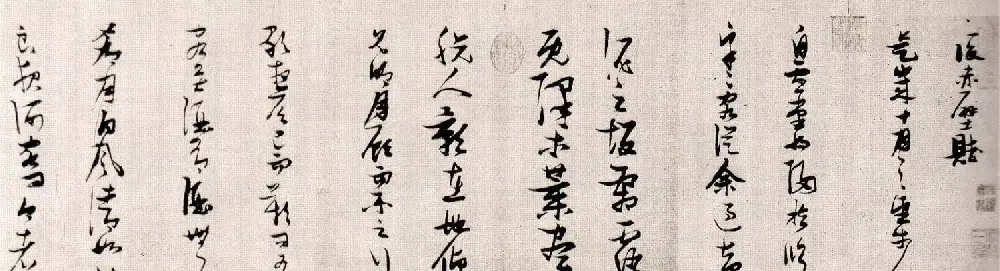 後赤壁賦
是歲十月之望步
自雪堂將歸於臨
皋二客從余過黃
泥之坂霜露
既降木葉盡
脫人影在地仰
見明月顧而樂之行
歌相答已而歎曰有
客無酒有酒無
肴月白風清如
此良夜何客曰今者